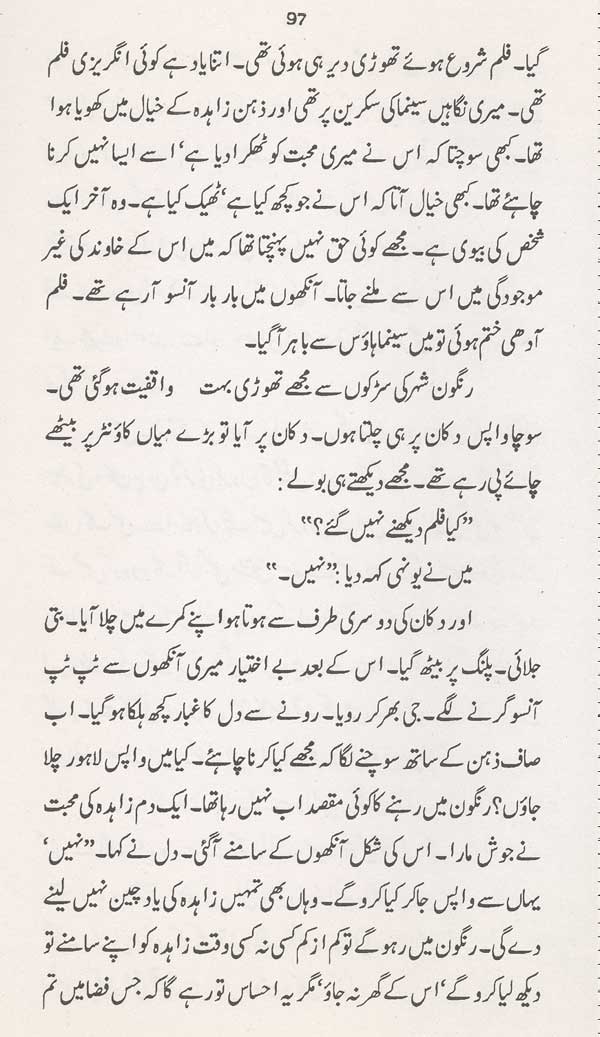 97
گیا۔ فلم شروع ہوئے تھوڑی دیر ہی ہوئی تھی۔ اتنا یاد ہے کوئی انگریزی فلم
تھی۔ میری نگاہیں سینما کی سکرین پر تھی اور ذہن زاہدہ کے خیال میں کھویا ہوا
تھا۔ کبھی سوچتا کہ اس نے میری محبت کو ٹھکرا دیا ہے‘ اسے ایسا نہیں کرنا
چاہئے تھا۔ کبھی خیال آتا کہ اس نے جو کچھ کیا ہے‘ ٹھیک کیا ہے۔ وہ آخر ایک
شخص کی بیوی ہے۔ مجھے کوئی حق نہیں پہنچتا تھا کہ میں اس کے خاوند کی غیر
موجودگی میں اس سے ملنے جاتا۔ آنکھوں میں بار بار آنسو آ رہے تھے۔ فلم
آدھی ختم ہوئی تو میں سینما ہاؤس سے باہر آ گیا۔
رنگون شہر کی سڑکوں سے مجھے تھوڑی بہت واقفیت ہو گئی تھی۔
سوچا واپس دکان پر ہی چلتا ہوں۔ دکان پر آیا تو بڑے میاں کاؤنٹر پر بیٹھے
چائے پی رہے تھے۔ مجھے دیکھتے ہی بولے :
”کیا فلم دیکھنے نہیں گئے؟“
میں نے یونہی کہہ دیا :”نہیں۔“
اور دکان کی دوسری طرف سے ہوتا ہوا اپنے کمرے میں چلا آیا۔ بتی
جلائی۔ پلنگ پر بیٹھ گیا۔ اس کے بعد بے اختیار میری آنکھوں سے ٹپ ٹپ
آنسو گرنے لگے۔ جی بھر کر رویا۔ رونے سے دل کا غبار کچھ ہلکا ہو گیا۔ اب
صاف ذہن کے ساتھ سوچنے لگا کہ مجھے کیا کرنا چاہئے۔ کیا میں واپس لاہور چلا
جاؤں؟ رنگون میں رہنے کا کوئی مقصد اب نہیں رہا تھا۔ ایک دم زاہدہ کی محبت
نے جوش مارا۔ اس کی شکل آنکھوں کے سامنے آ گئی۔ دل نے کہا۔ ”نہیں‘
یہاں سے واپس جا کر کیا کرو گے۔ وہاں بھی تمہیں زاہدہ کی یاد چین نہیں لینے
دے گی۔ رنگون میں رہو گے تو کم از کم کسی نہ کسی وقت زاہدہ کو اپنے سامنے تو
دیکھ لیا کرو گے‘ اس کے گھر نہ جاؤ‘ مگر یہ احساس تو رہے گا کہ جس فضا میں تم